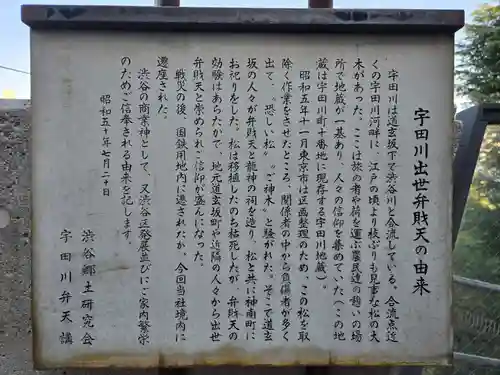 宇田川出世弁財天の由来
宇田川は道玄坂下で渋谷川と合流している。合流点近
くの宇田川河畔に、江戸の頃より枝ぶりも見事な松の大
木があった。ここは旅の者や荷を運ぶ農民達の憩いの場
所で地蔵が一基あり、人々の信仰を集めていた(この地
蔵は宇田川町十番地に現存する宇田川地蔵)。
昭和五年十一月東京市は区画整理のため、この松を取
除く作業をさせたところ、関係者の中から負傷者が多く
出て、"恐しい松" "ご神木"と騒がれた。そこで道玄
坂の人々が弁財天と龍神の祠を造り、松と共に神南町に
お祀りをした。松は移植したのち枯死したが、弁財天の
効験はあらたかで、地元道玄坂町や近隣の人々から出世
弁財天と崇められ、信仰が盛んになった。
戦災の後、国鉄用地内に遷されたなが、今回当社境内に
遷座された。
渋谷の商業神として、又渋谷区発展並びにご家内繁栄
のためご信奉される由来を記します。
昭和五十年七月二十日
渋谷郷土研究会
宇田川弁天講